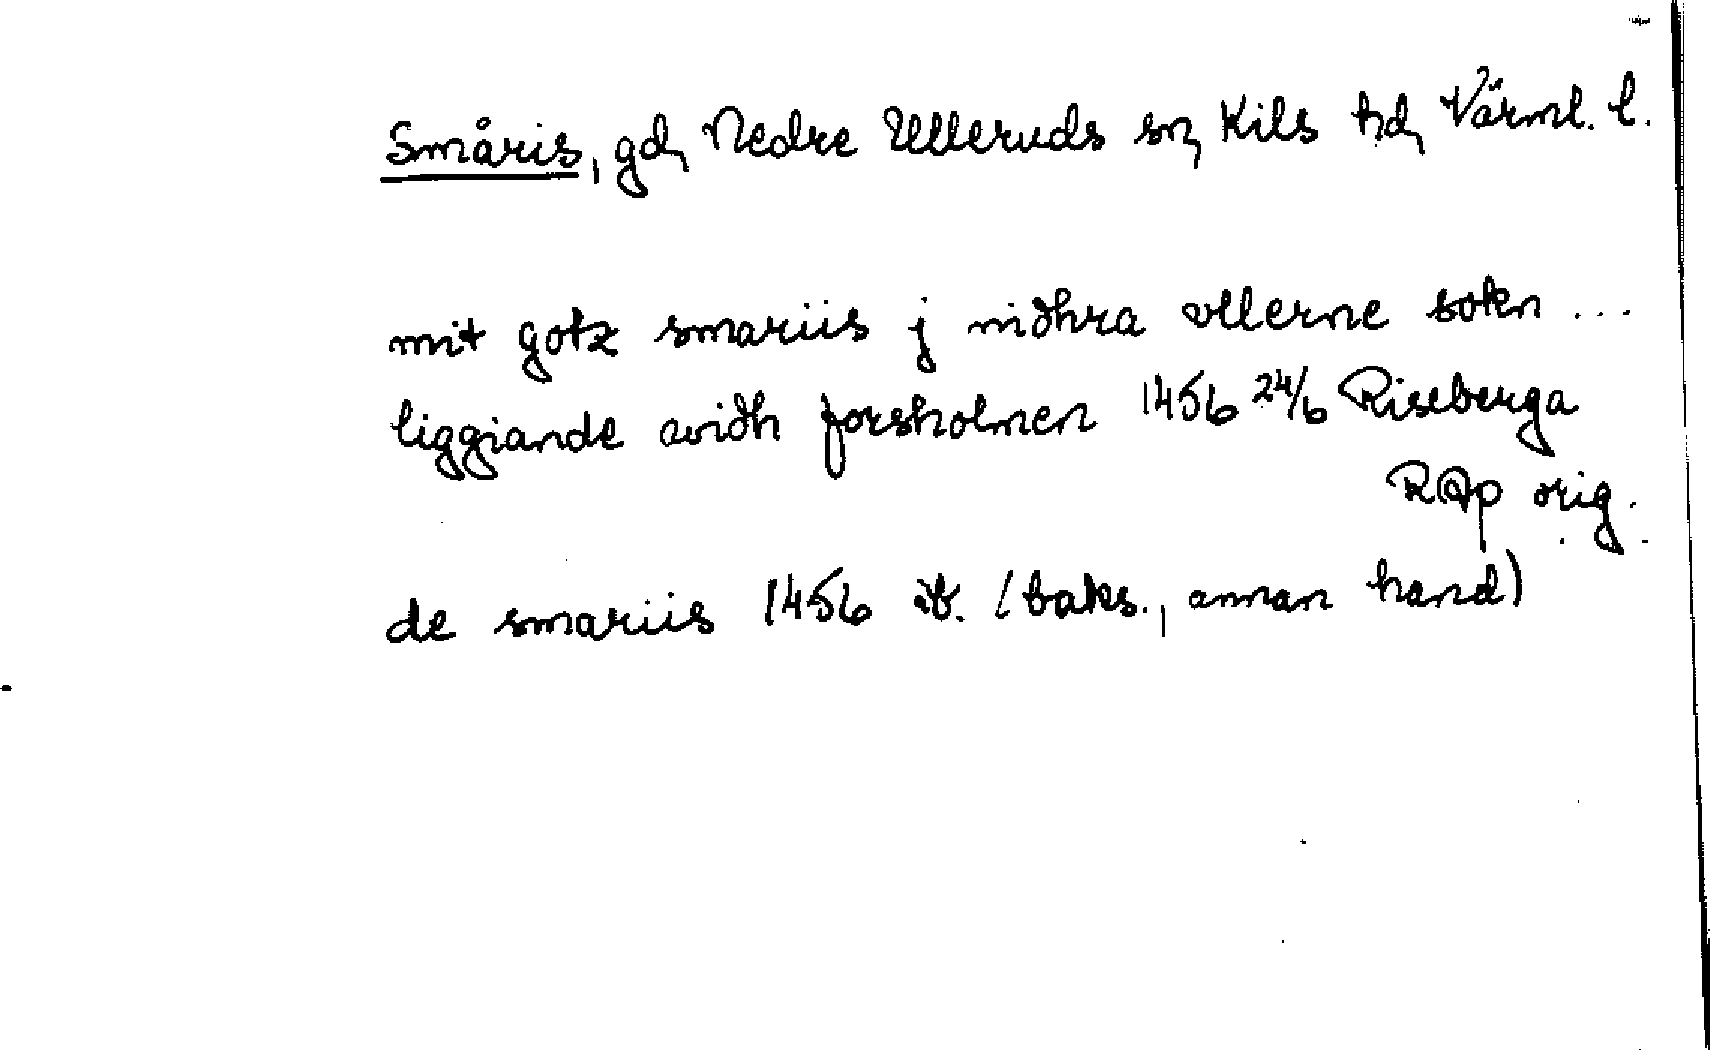 Småris, gd, Nedre Ulleruds sn, Kils hd, Värml. l.
mit gotz smariis j niðhra vllerne sokn ...
liggiande aviðh forsholmen 1456 24/6 Riseberga
RAp orig.
de smariis 1456 ib. (baks., annan hand)